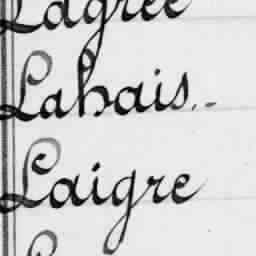 Lagrée
Lahais..
Laigre